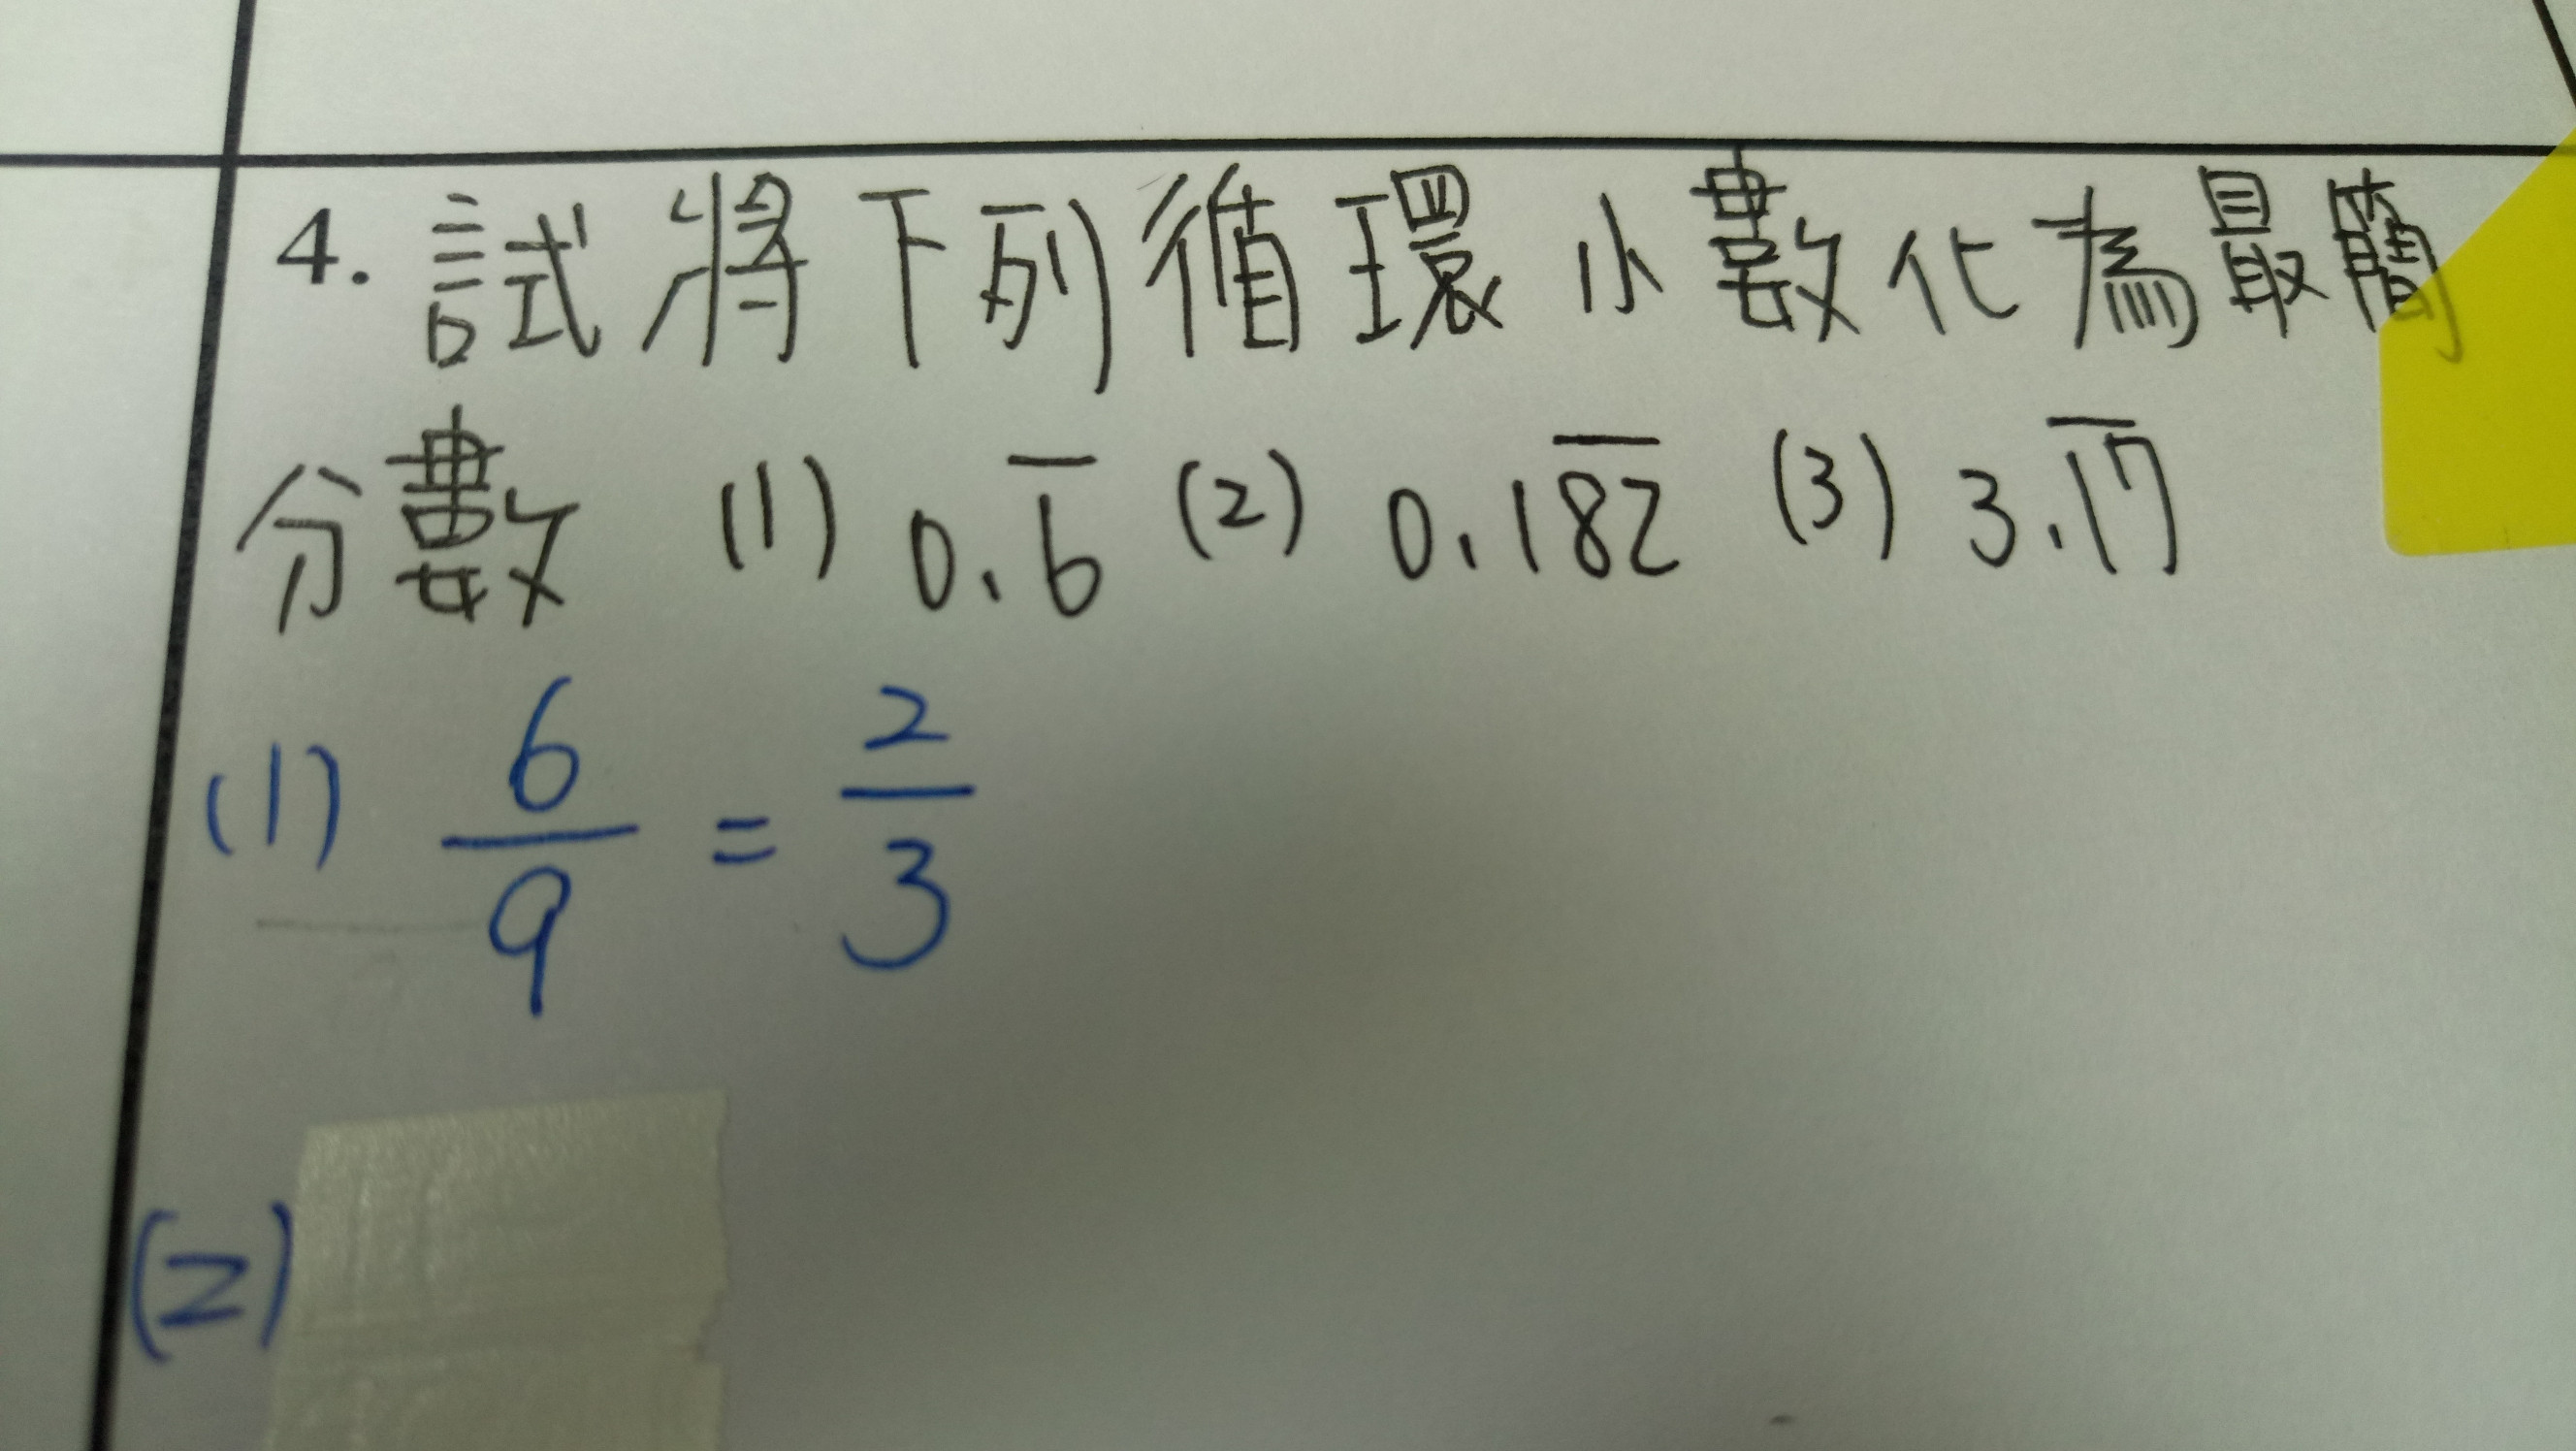 4. 試將下列循環小數化為最簡
分數 (1) 0.6̅ (2) 0.18̅2̅ (3) 3.1̅7̅
(1) 6/9 = 2/3
(2)